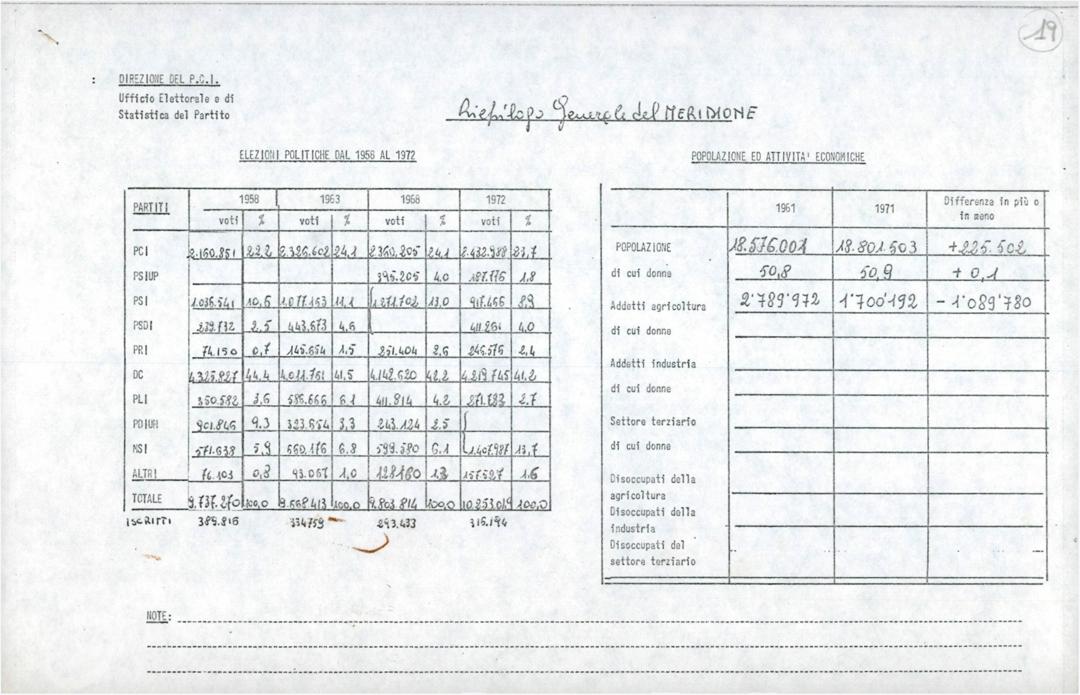 19
: DIREZIONE DEL P.C.I.
Ufficio Elettorale e di
Statistica del Partito
Riepilogo Generale del MERIDIONE
ELEZIONI POLITICHE DAL 1958 AL 1972
POPOLAZIONE ED ATTIVITA' ECONOMICHE
PARTITI 1958 1963 1968 1972
voti % voti % voti % voti %
PCI 2.160.851 22,2 2.326.602 24,1 2.360.205 24,1 2.432.988 23,7
PSIUP 395.205 4.0 187.776 1.8
PSI 1.036.541 10,6 1.077.153 11,1 1.271.702 13,0 917.466 8,9
PSDI 239.732 2,5 443.673 4,6 411.261 4,0
PRI 74.150 0,7 145.654 1,5 251.404 2,6 246.576 2,4
DC 4.325.827 44,4 4.011.761 41,5 4.142.620 42,2 4.219.745 41,2
PLI 350.582 3,6 586.666 6,1 411.814 4,2 271.723 2,7
PDIUM 901.846 9.3 323.654 3,3 243.124 2,5
MSI 571.638 5,9 660.176 6.8 599.580 6.1 1.407.987 13,7
ALTRI 76.103 0,8 93.067 1,0 128160 1,3 157.527 1.6
TOTALE 9.737.270 100,0 9.668.413 100,0 9.803.814 100,0 10.253.049 100,0
ISCRITTI 385.816 334759 293.433 316.194
1961 1971 Differenza in più o
in meno
POPOLAZIONE 18.576.001 18.801.503 +225.502
di cui donne 50,8 50,9 + 0,1
Addetti agricoltura 2'789'972 1'700'192 - 1'089'780
di cui donne
Addetti industria
di cui donne
Settore terziario
di cui donne
Disoccupati della
agricoltura
Disoccupati della
industria
Disoccupati del
settore terziario
NOTE: